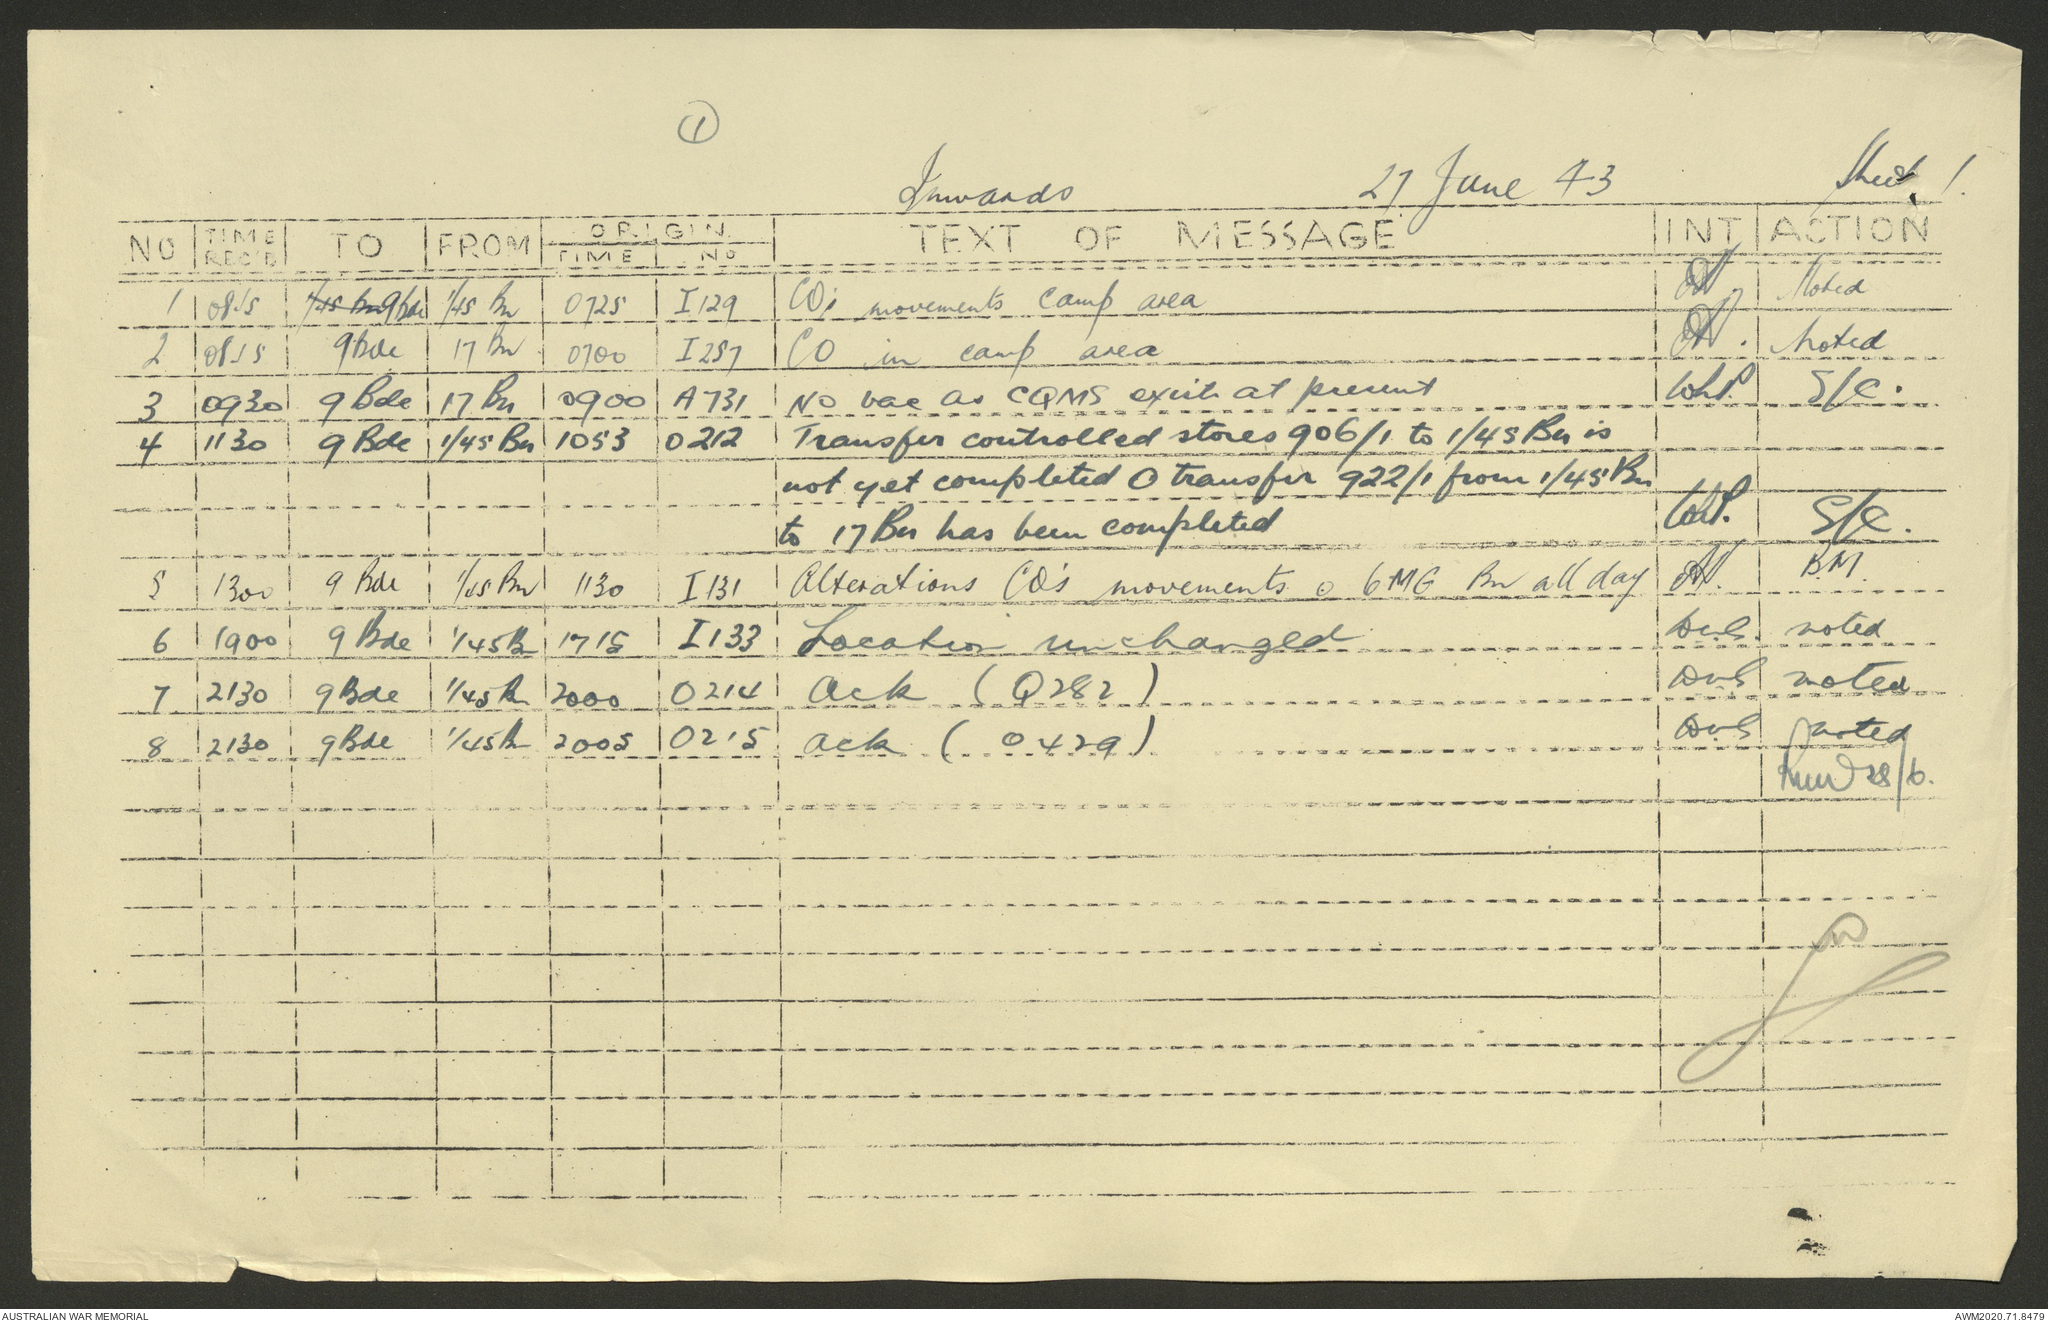 ①
Inwards 27 June 43 Sheet 1.
NO TIME REC'D TO FROM ORIGIN TIME NO TEXT OF MESSAGE INT ACTION
1 0815 1/45 Bn 9 Bde 1/45 Bn 0725 I129 CO's movements camp area Noted
2 0815 9 Bde 17 Bn 0700 I257 CO in camp area Noted
3 0930 9 Bde 17 Bn 0900 A731 No vac as CQMS exist at present WhP. S/C.
4 1130 9 Bde 1/45 Bn 1053 O212 Transfer controlled stores 906/1 to 1/45 Bn is
not yet completed O transfer 922/1 from 1/45 Bn
to 17 Bn has been completed WhP. S/C.
5 1300 9 Bde 1/45 Bn 1130 I131 Alterations CO's movements o 6 MG Bn all day B.M.
6 1900 9 Bde 1/45 Bn 1715 I133 Location unchanged DvS. noted
7 2130 9 Bde 1/45 Bn 2000 O214 Ack (Q282) DvS noted
8 2130 9 Bde 1/45 Bn 2005 O215 ack (O429) DvS noted
28/6.
AUSTRALIAN WAR MEMORIAL AWM2020.71.8479